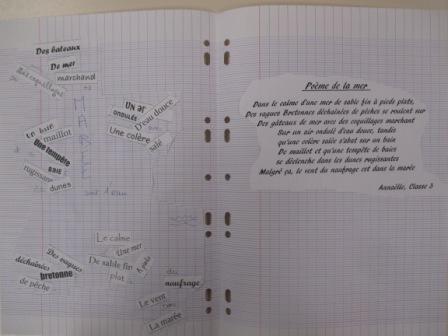 Des bateaux
De mer
marchand
UN air
ondulés
D'eau douce
Une colère
salé
maillot
Une tempête
BAIE
rugissant
dunes
Le calme
Une mer
De sable fin
plat
Des vagues
déchaînées
bretonne
de pêche
naufrage
Le vent
La marée
Poème de la mer
Dans le calme d'une mer de sable fin à pieds plats,
Des vagues Bretonnes déchainées de pêches se roulent sur
Des gâteaux de mer avec des coquillages marchant
Sur un air ondulé d'eau douce, tandis
qu'une colère salée s'abat sur un bain
De maillot et qu'une tempête de baies
se déclenche dans les dunes rugissantes
Malgré ça, le vent du naufrage est dans la marée
Annaëlle, Classe 3